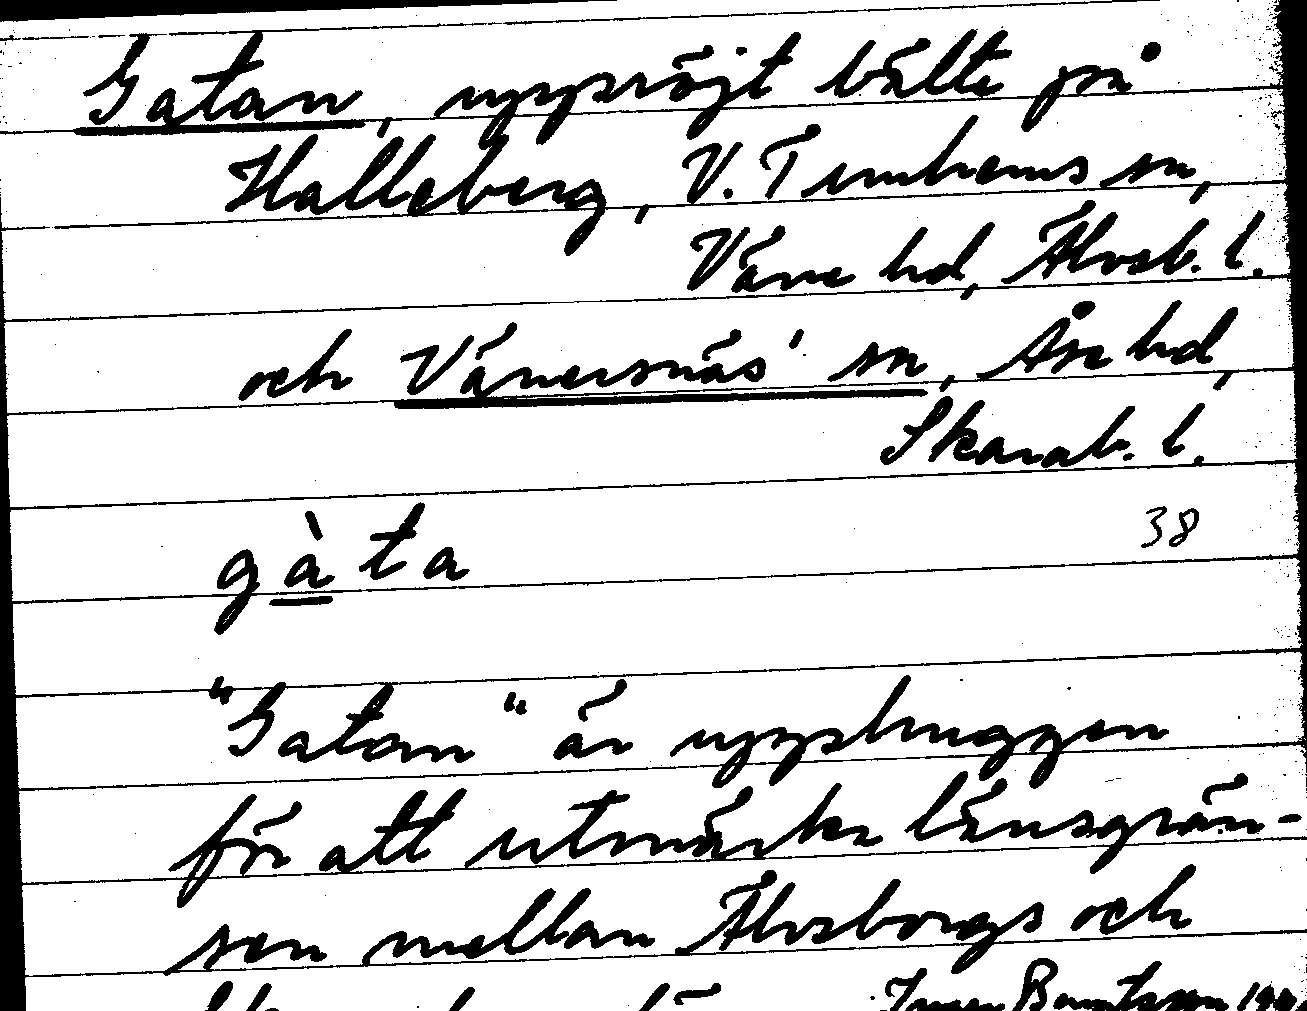 Gatan, uppröjt bälte på
Halleberg, V. Tunhems sn,
Väne hd, Älvsb. l.
och Vänersnäs' sn, Åse hd,
Skarab. l.
38
gàta
"Gatan" är upphuggen
för att utmärka länsgrän-
sen mellan Älvsborgs och